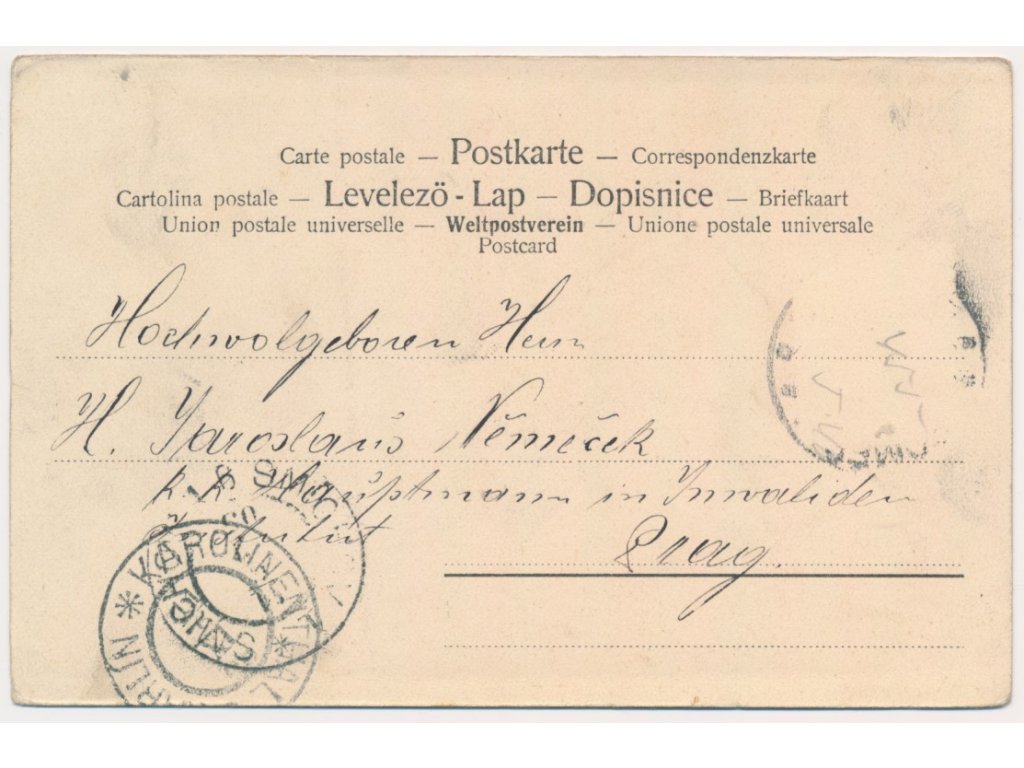 Carte postale — Postkarte — Correspondenzkarte
Cartolina postale — Levelezö - Lap — Dopisnice — Briefkaart
Union postale universelle — Weltpostverein — Unione postale universale
Postcard
Hochwolgeboren Herrn
H. Jaroslaus Němeček
k. k. Hauptmann in Invaliden
Institut
Prag.
KAROLINENTHAL